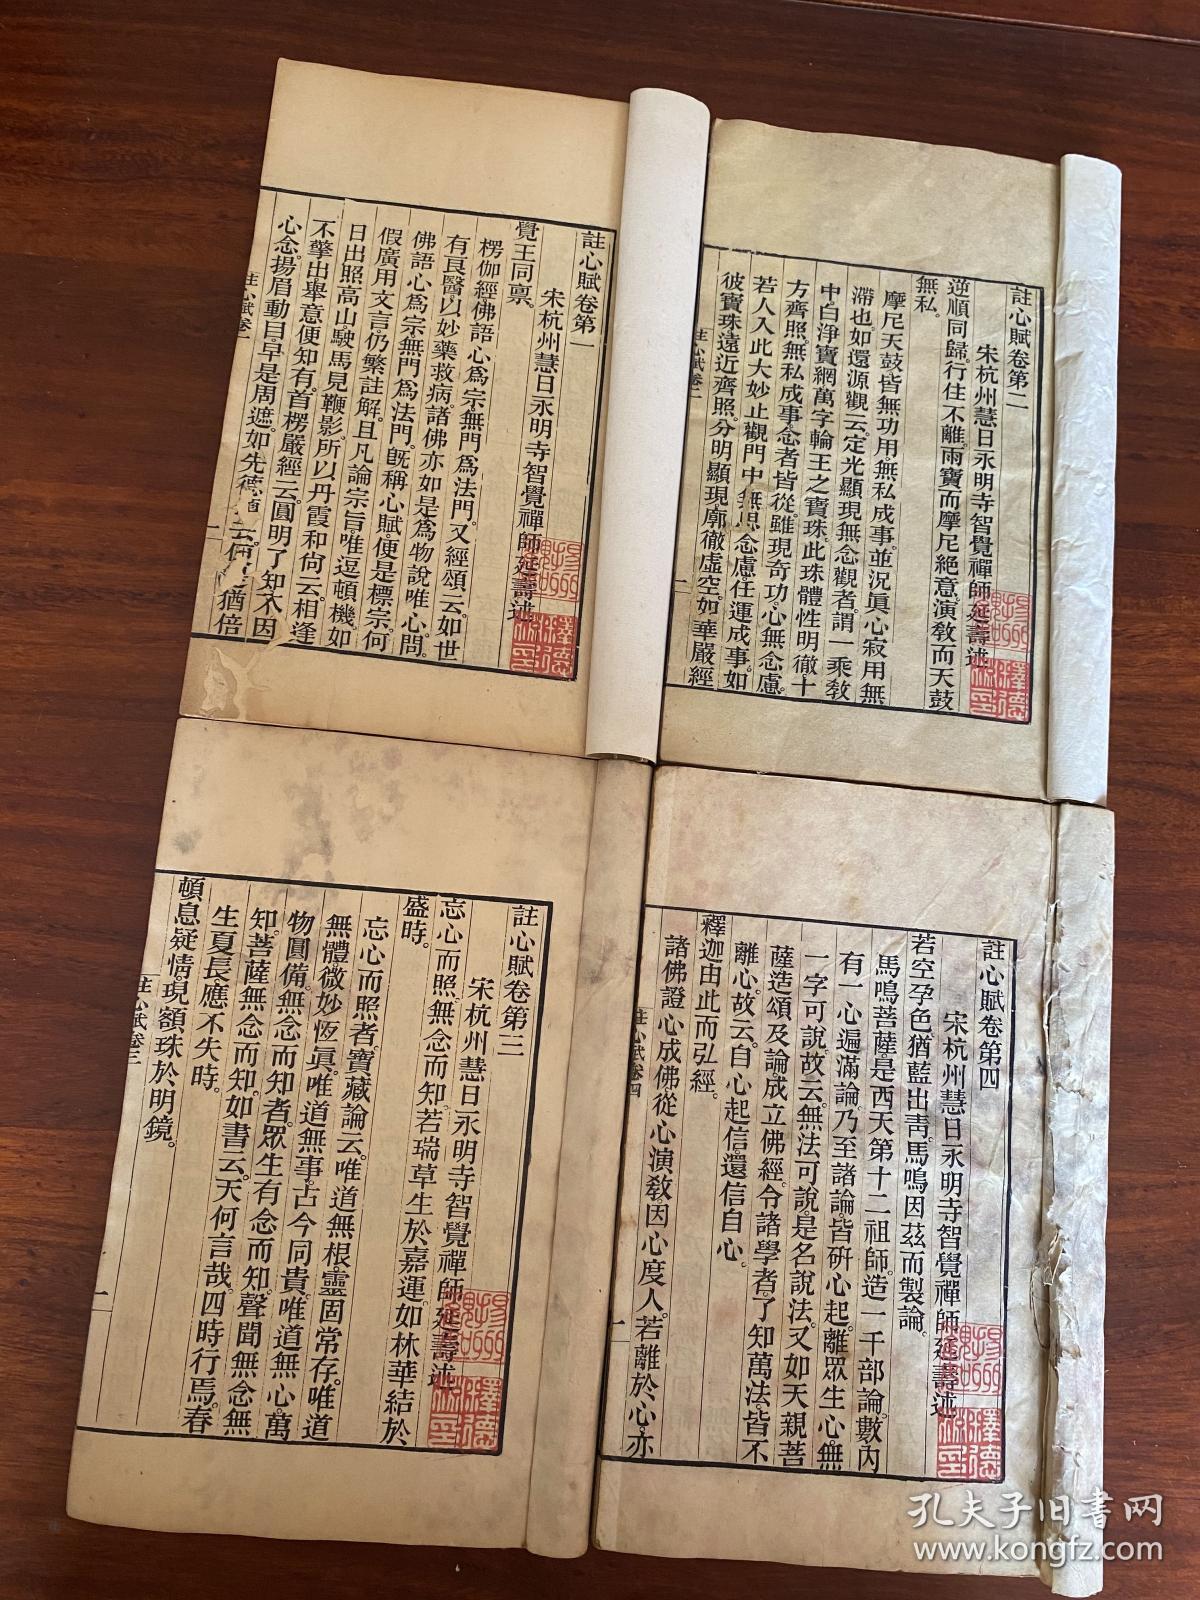 註心賦卷第一
宋杭州慧日永明寺智覺禪師延壽述
覺王同禀
楞伽經佛語心爲宗。無門爲法門。又經頌云。如世
有良醫。以妙藥救病。諸佛亦如是。爲物說唯心。問。
佛語心爲宗。無門爲法門。旣稱心賦。便是標宗。何
假廣用文言。仍繁註解。且凡論宗旨。唯逗頓機。如
日出照高山。駛馬見鞭影。所以丹霞和尙云。相逢
不擎出。舉意便知有。首楞嚴經云。圓明了知。不因
心念。揚眉動目。早是周遮。如先德 云。 猶倍
註心賦卷一
註心賦卷第二
宋杭州慧日永明寺智覺禪師延壽述
逆順同歸。行住不離。雨寶而摩尼絕意。演敎而天鼓
無私。
摩尼天鼓。皆無功用。無私成事。並況眞心寂用無
滯也。如還源觀云。定光顯現無念觀者。謂一乘敎
中。白淨寶網萬字輪王之寶珠。此珠體性明徹。十
方齊照。無私成事。念者皆從。雖現奇功。心無念慮。
若人入此大妙止觀門中。無思念慮。任運成事。如
彼寶珠。遠近齊照。分明顯現。廓徹虛空。如華嚴經
註心賦卷二
註心賦卷第三
宋杭州慧日永明寺智覺禪師延壽述
忘心而照。無念而知。若瑞草生於嘉運。如林華結於
盛時。
忘心而照者。寶藏論云。唯道無根。靈固常存。唯道
無體。微妙恆眞。唯道無事。古今同貴。唯道無心。萬
物圓備。無念而知者。眾生有念而知。聲聞無念無
知。菩薩無念而知。如書云。天何言哉。四時行焉。春
生夏長。應不失時。
頓息疑情。現額珠於明鏡。
註心賦卷三
註心賦卷第四
宋杭州慧日永明寺智覺禪師延壽述
若空孕色。猶藍出靑。馬鳴因茲而製論。
馬鳴菩薩。是西天第十二祖師。造一千部論。數內
有一心遍滿論。乃至諸論。皆硏心起。離眾生心。無
一字可說。故云。無法可說。是名說法。又如天親菩
薩造頌。及論成立佛經。令諸學者。了知萬法。皆不
離心。故云。自心起信。還信自心。
釋迦由此而弘經。
諸佛證心成佛。從心演敎。因心度人。若離於心。亦
註心賦卷四
孔夫子旧书网
www.kongfz.com